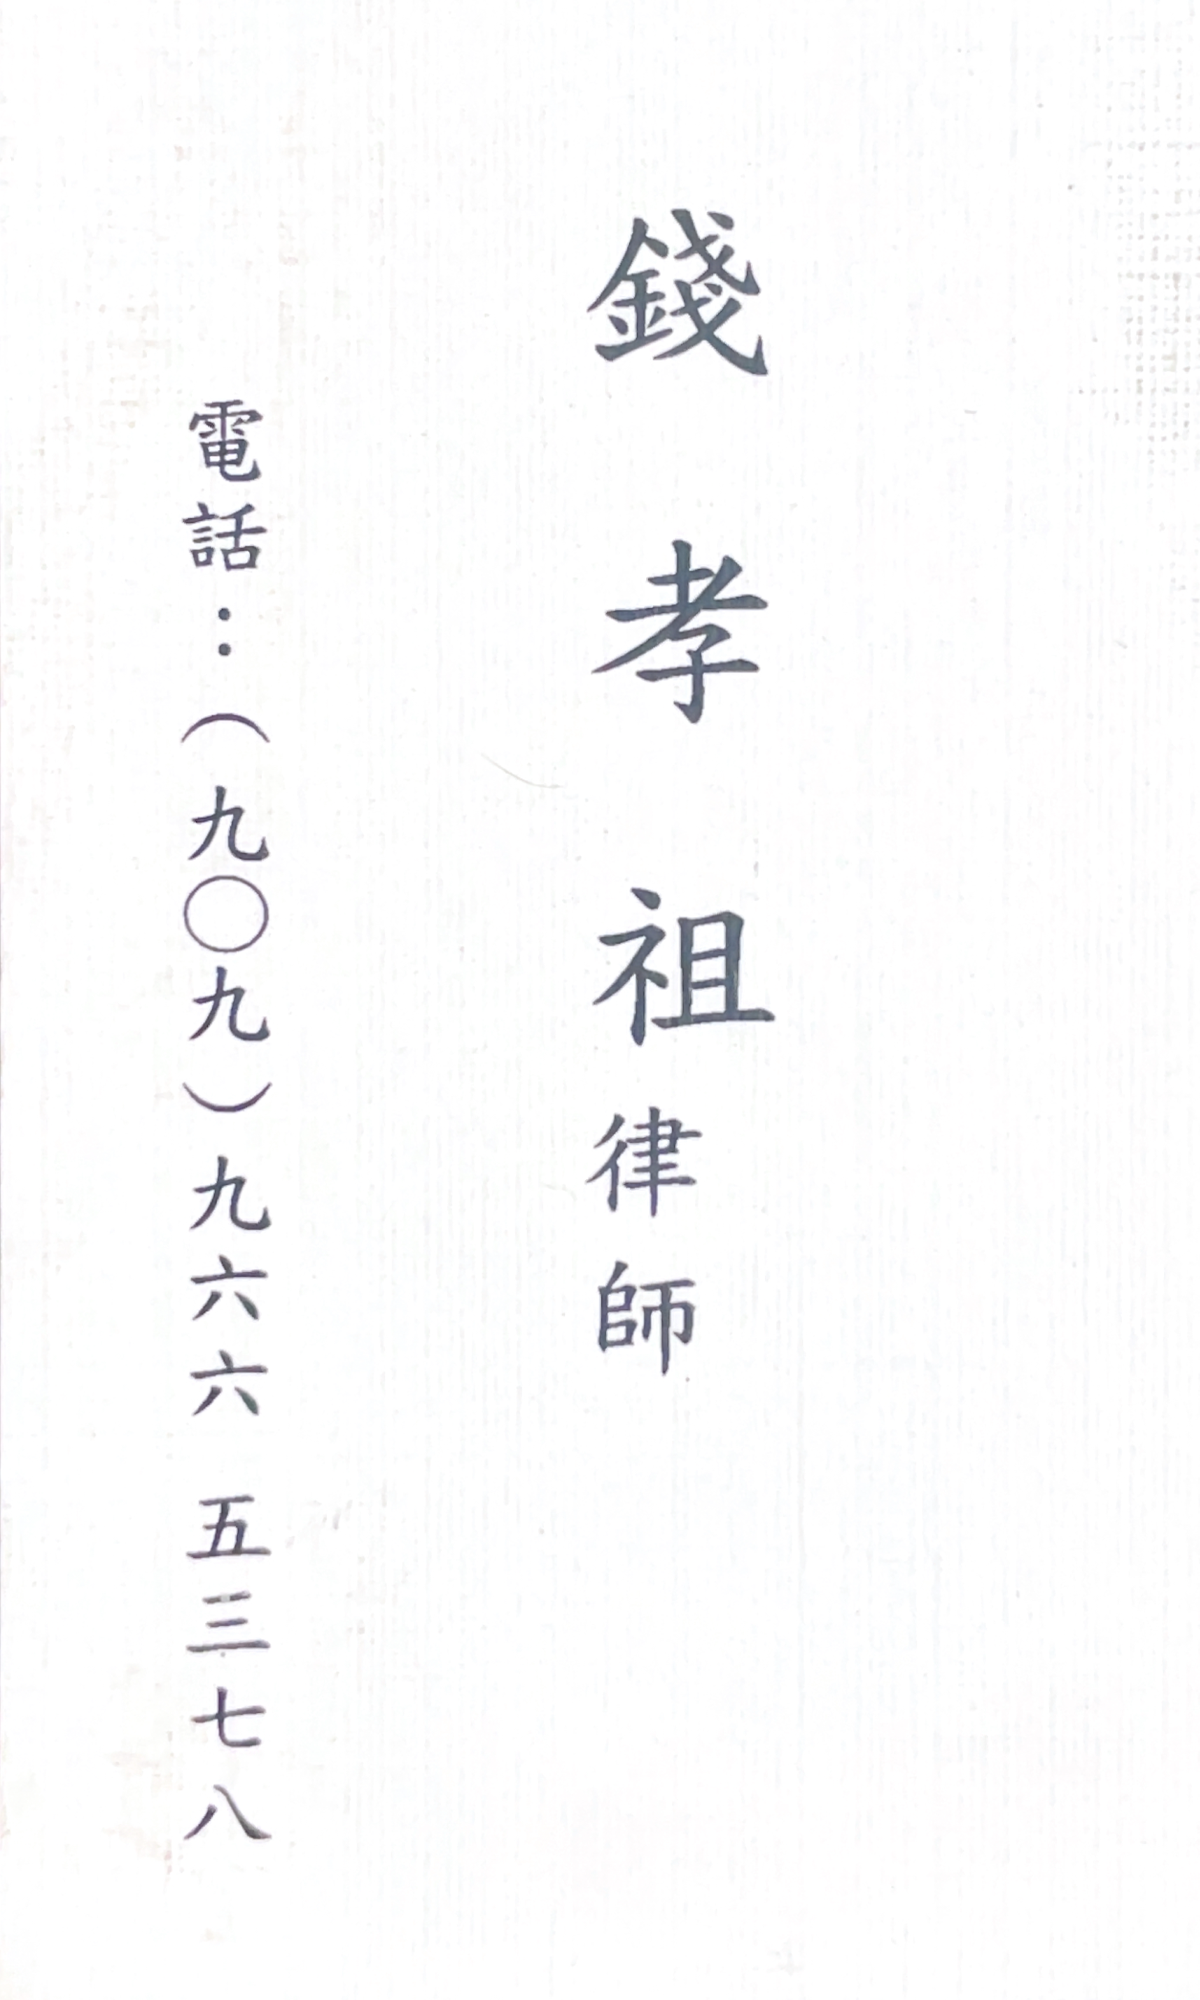 錢孝祖律師
電話：（九〇九）九六六 五三七八